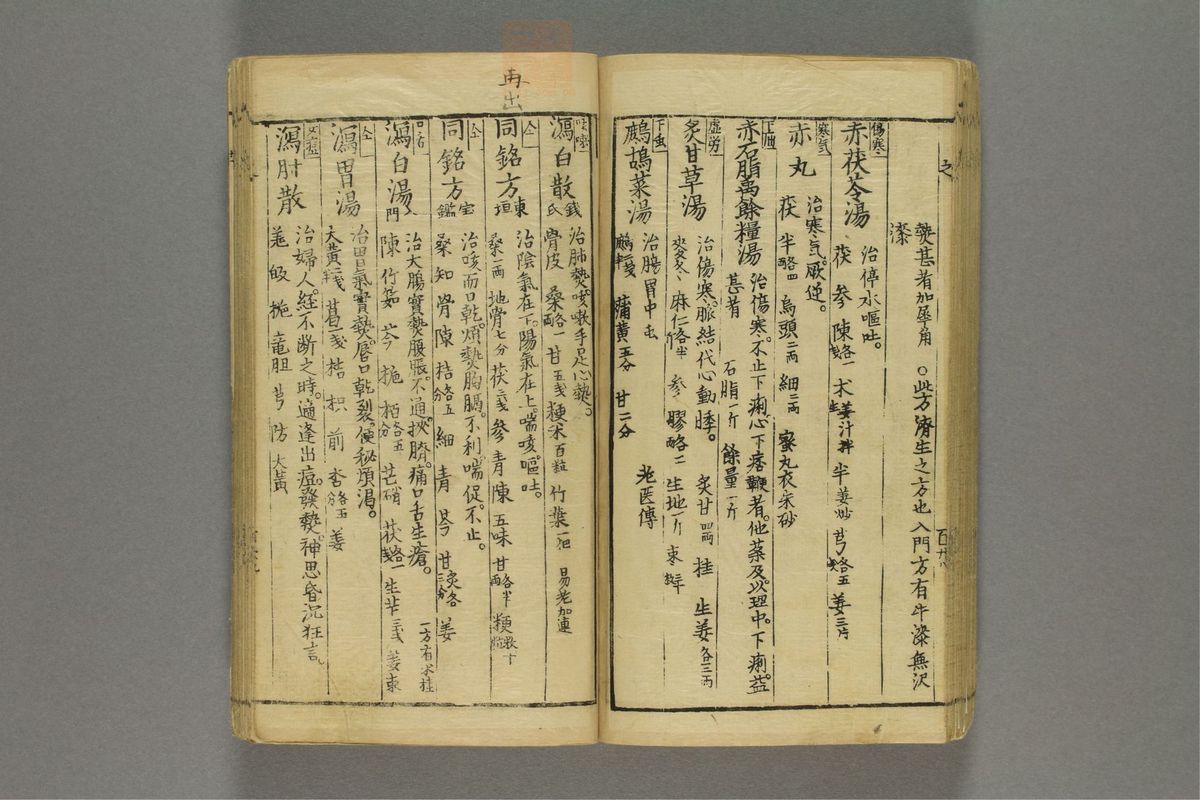 熱甚者加犀角 ○此方濟生之方也入門方有牛漆無沢
漆
傷寒
赤茯苓湯
治停水嘔吐。
茯 参 陳各一戔 朮姜汁拌 半姜炒 芎各五 姜三片
寒气
赤丸
治寒气。厥逆。
茯 半各四 烏頭二両 細二両 蜜丸衣朱砂
赤石脂禹餘糧湯
治傷寒。不止下痢。心下痞鞕者。他薬及以理中。下痢。益
甚者 石脂一斤 餘量一斤
虚労
炙甘草湯
治傷寒。脈結代心動悸。 炙甘四両 桂 生姜各三両
麥冬 麻仁各半 参 膠各二 生地一斤 棗
下虫
鷓鴣菜湯
治腸胃中虫 老医傳
鷓 蒲黄五分 甘二分
再出
咳嗽
瀉白散 錢氏
治肺熱。咳嗽手足心熱。
骨皮 桑各一両 甘五戔 粳米百粒 竹葉一把 易老加連
仝
同銘方 東垣
治陰氣在下。陽氣在上。喘咳。嘔吐。
桑一両 地骨七分 茯 参 青 陳 五味 甘各半両 粳
仝
同銘方 宝鑑
治咳而口乾。煩熱胸膈。不利。喘促。不止。
桑 知 骨 陳 桔各五分 細 青 芩 甘炙各三分 姜
口舌
瀉白湯 入門
治大腸實熱腹脹。不通。挾臍。痛口舌生瘡。
陳 竹茹 芩 梔 栢各五分 芒硝 茯各一戔 生苄三戔 姜棗 一方有朮桂
仝
瀉胃湯
治胃氣實熱。唇口乾裂。便秘煩渇。
大黄 葛一戔 桔 枳 前 杏各五分 姜
瀉肝散
治婦人。経不断之時。適逢出痘。發熱。神思昏沉狂言。
羌 皈 梔 竜胆 芎 防 大黄